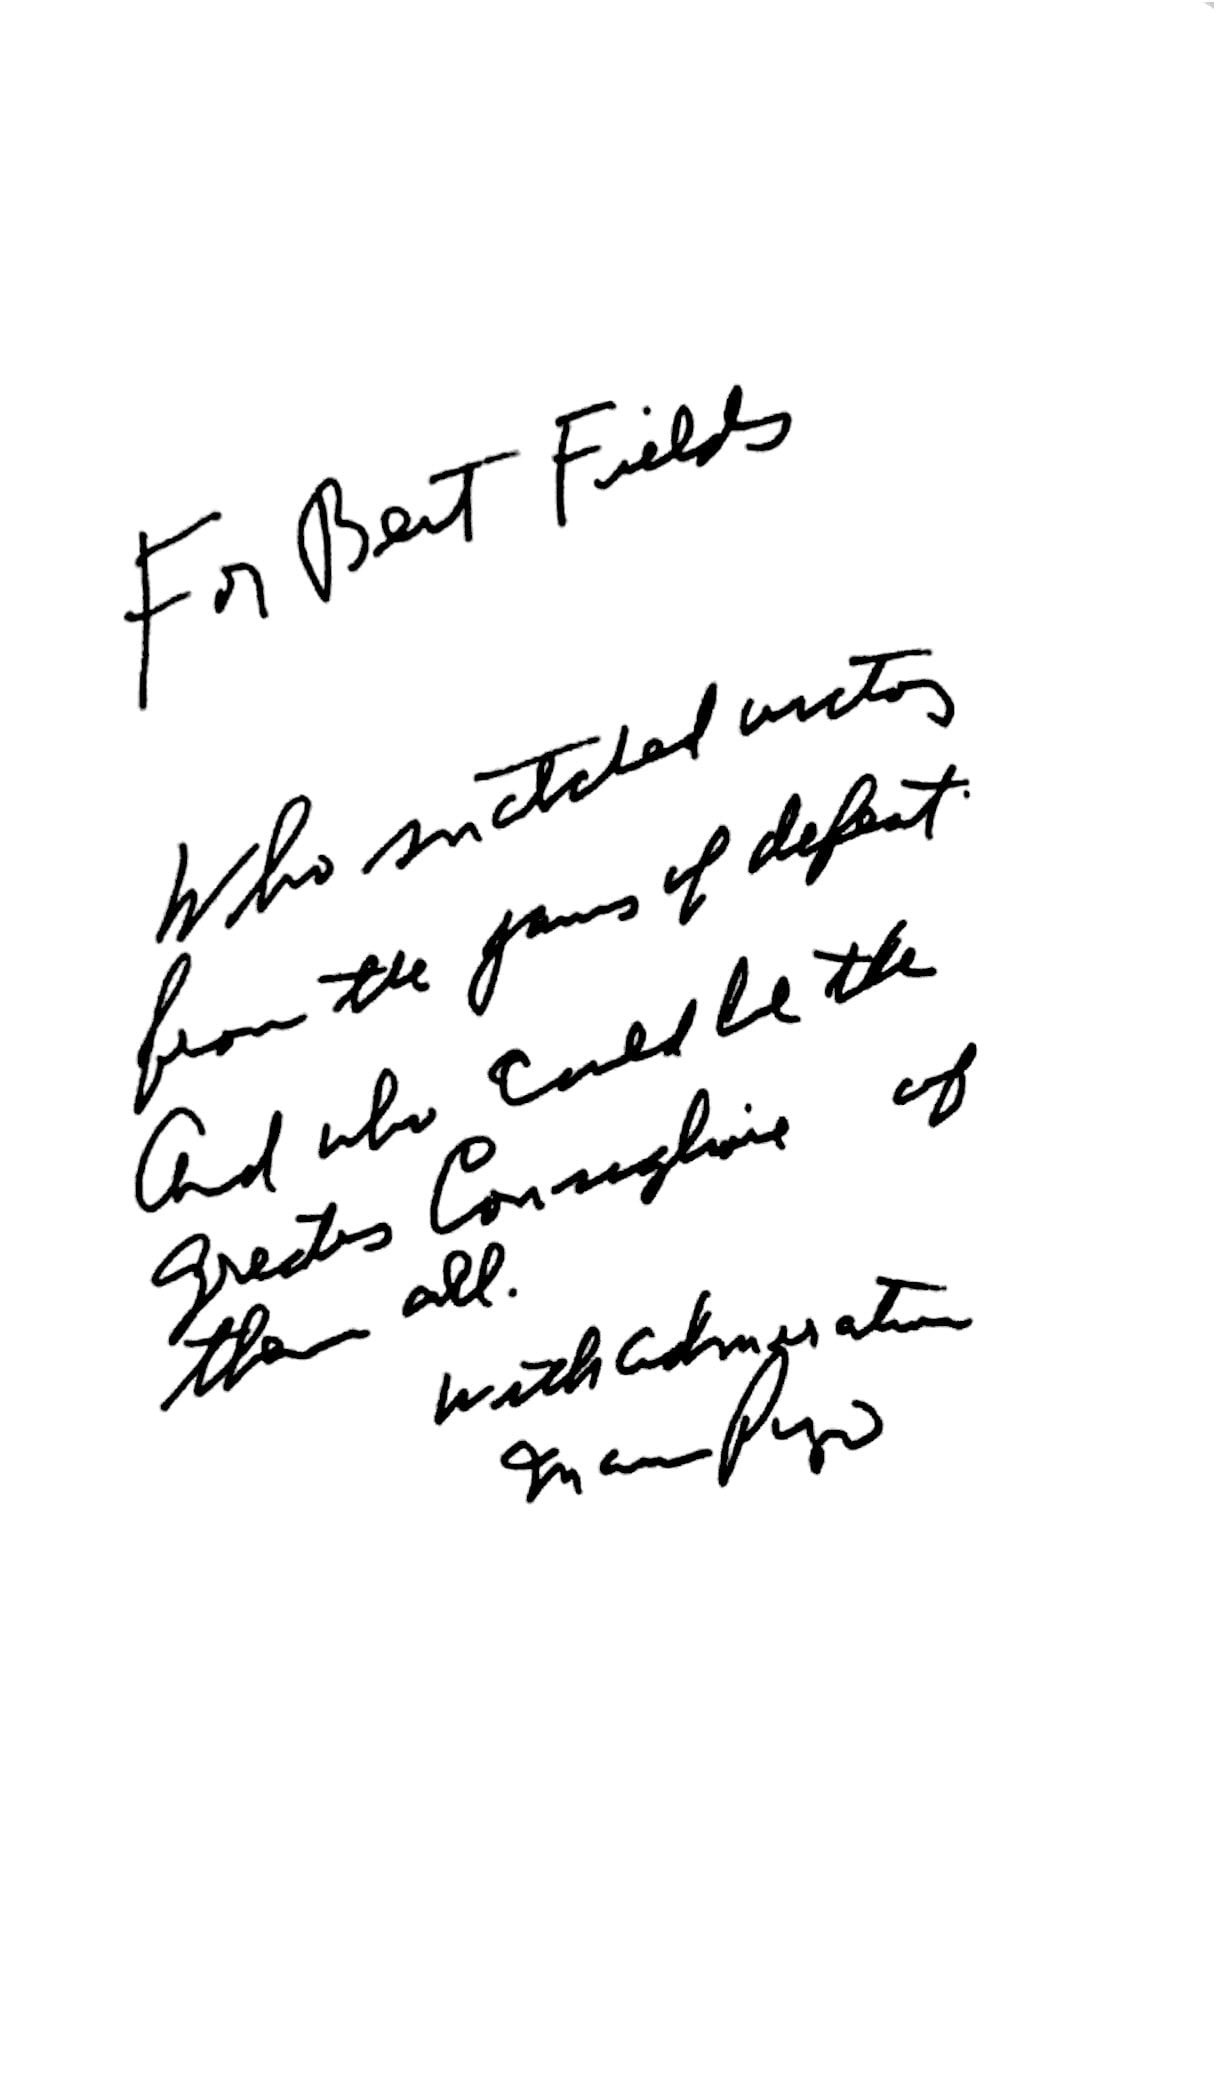 For Bert Fields
Who snatched victory
from the jaws of defeat.
And who could be the
greatest Consigliorie of
them all.
with admiration
Mario Puzo